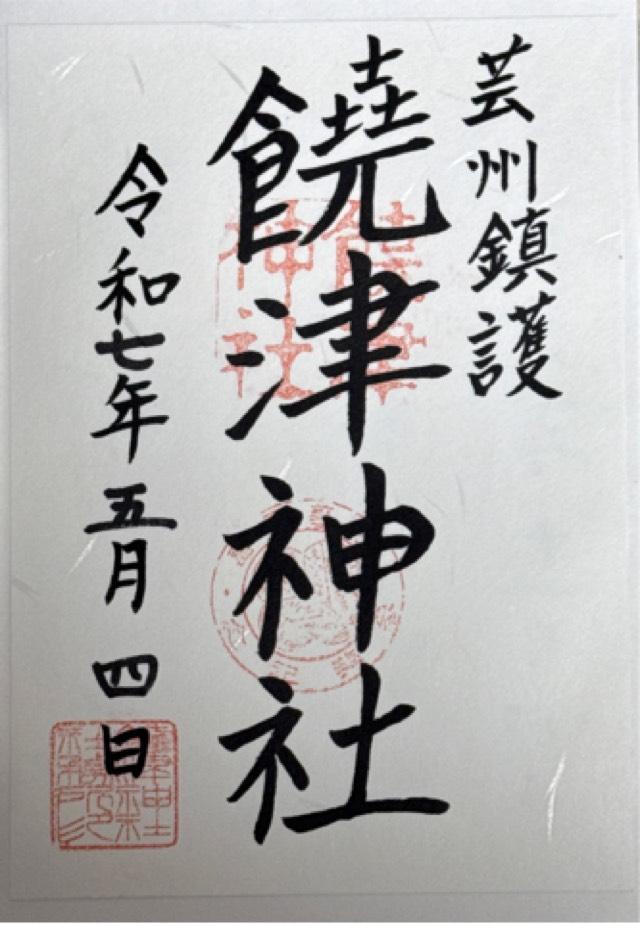 芸州鎮護
饒津神社
令和七年五月四日
饒津
神社